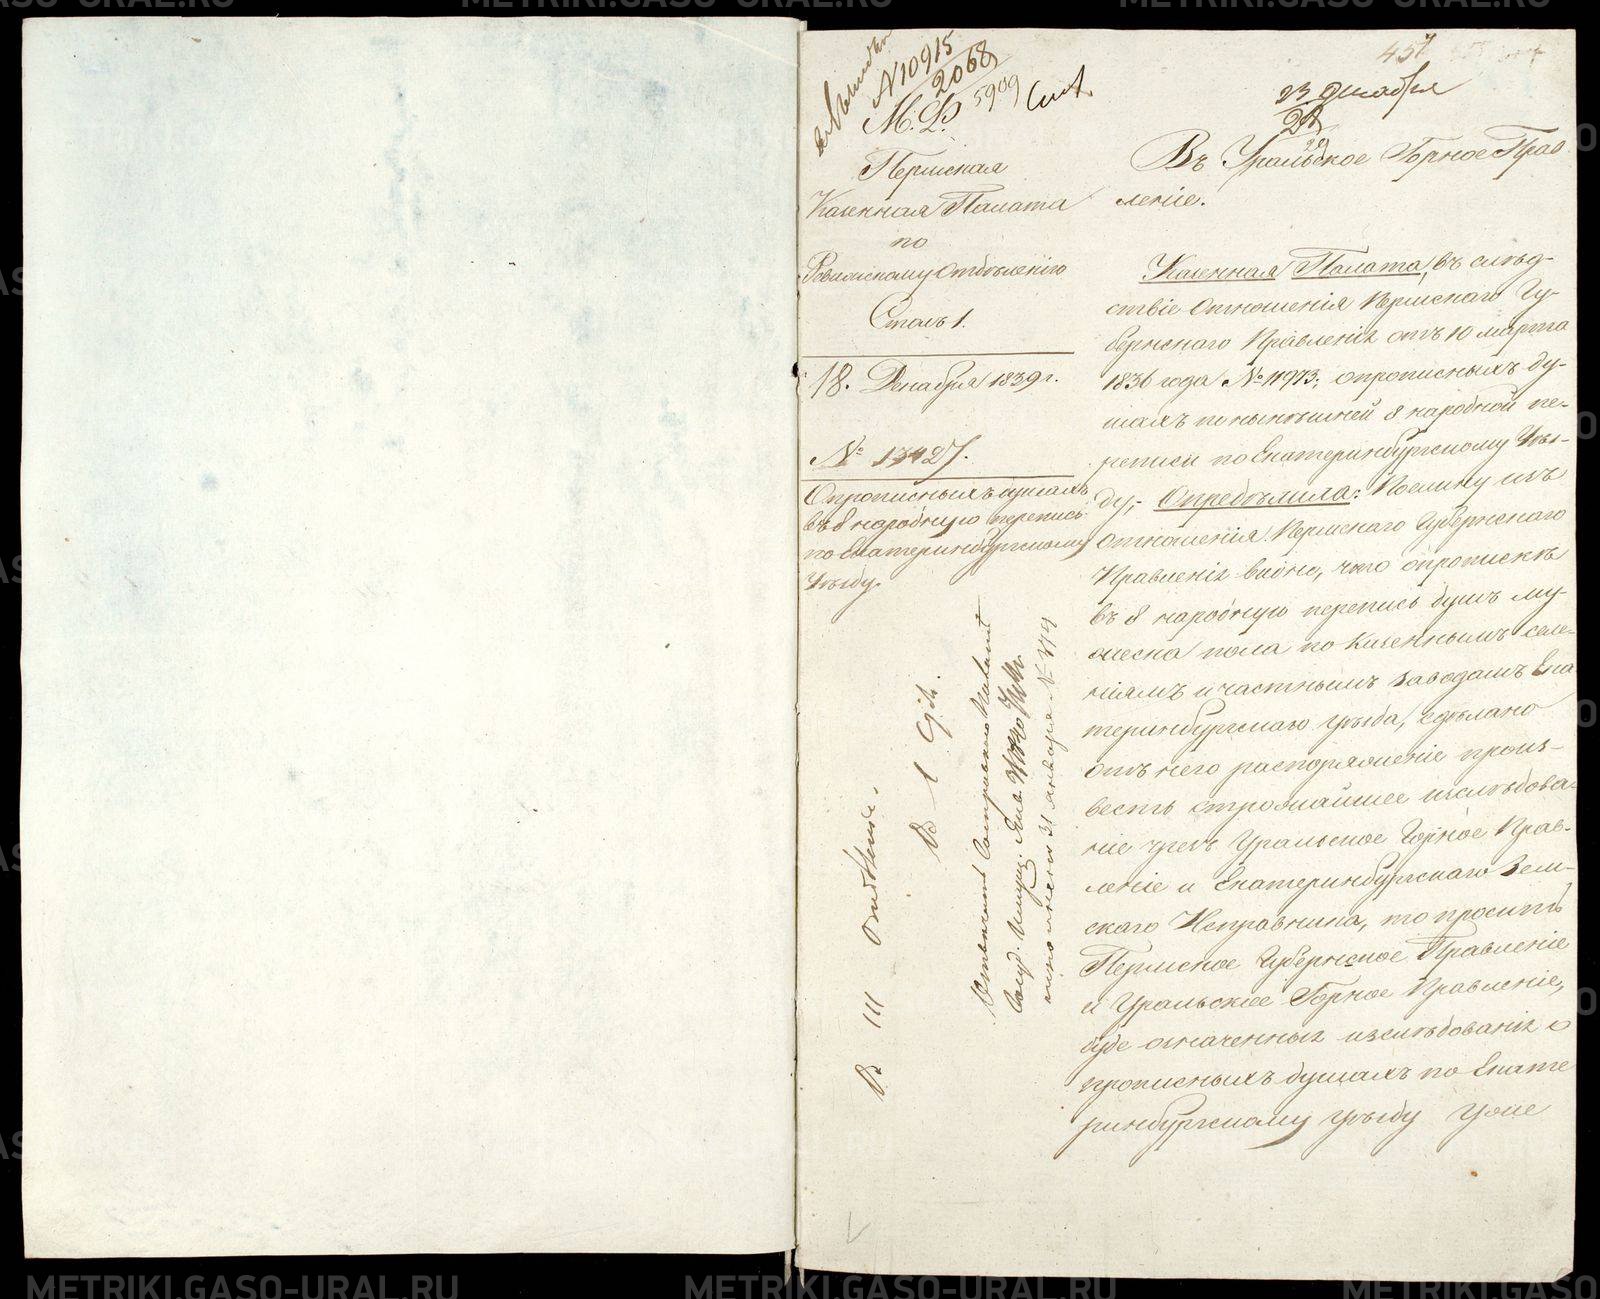 457
№ 10915
2068
5909
М. Ф.
Пермская
Казенная Палата
по
Ревизскому Отдѣленію
Столъ 1.
18. Декабря 1839 г.
№ 13427.
О прописныхъ душахъ
въ 8 народную перепись
по Екатеринбургскому
Уѣзду.
23 декабря
Въ Уральское Горное Прав
леніе.
Казенная Палата, въ слѣд-
ствіе Отношенія Пермскаго Гу-
бернскаго Правленія отъ 10 марта
1836 года № 11973; о прописныхъ ду-
шахъ по нынѣшней 8 народной пе-
реписи по Екатеринбургскому Уѣз-
ду,- Опредѣлила: Поелику изъ
Отношенія Пермскаго Губернскаго
Правленія видно, что о пропискѣ
въ 8 народную перепись душъ му-
жеска пола по Казеннымъ селе-
ніямъ и частнымъ заводамъ Ека
теринбургскаго уѣзда, сдѣлано
отъ него распоряженіе произ-
весть строжайшее изслѣдова-
ніе чрезъ Уральское Горное Прав-
леніе и Екатеринбургскаго Зем-
скаго Исправника, то просить
Пермское Губернское Правленіе
и Уральское Горное Правленіе,
буде означенныя изслѣдованія о
прописныхъ душахъ по Екате
ринбургскому уѣзду уже
31 января № 314
METRIKI.GASO-URAL.RU